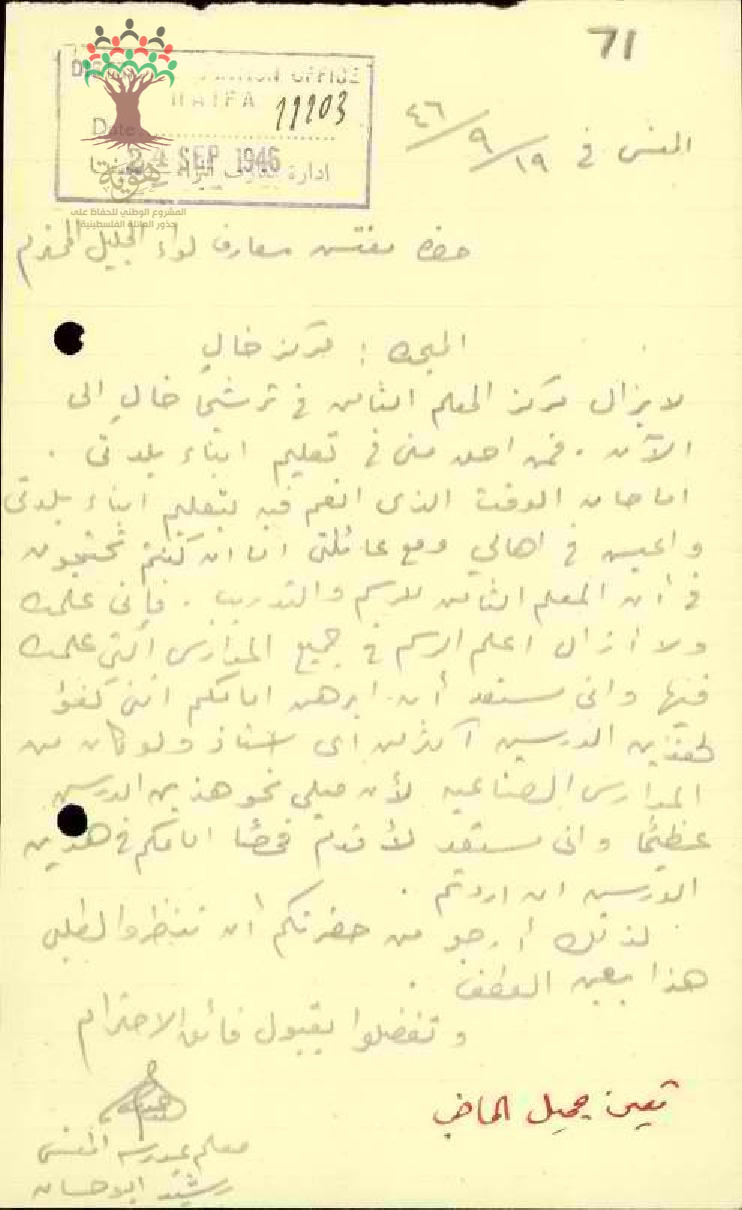 71
DISTRICT EDUCATION OFFICE
HAIFA
11103
Date
24 SEP 1946
ادارة معارف اللواء حيفا
هوية
المشروع الوطني للحفاظ على
جذور العائلة الفلسطينية
المنسي في ١٩/٩/٤٦
حضرة مفتش معارف لواء الجليل المحترم
المبحث : مركز خالٍ
لا يزال مركز المعلم الثامن في ترشيحا خالٍ الى
الآن . فمن احق مني في تعليم ابناء بلدتي .
اما حان الوقت الذي انعم فيه بتعليم ابناء بلدتي
واعيش في اهالي ومع عائلتي اما ان كنتم تحتجون
في أن المعلم الثامن للرسم والتدريب . فإني علمت
ولا أزال اعلم الرسم في جميع المدارس التي علمت
فيها واني مستعد أن ابرهن امامكم انني كفؤا
لهذين الدرسين اكثر من اي استاذ ولو كان من
المدارس الصناعية لأن ميلي نحو هذين الدرسين
عظيمًا واني مستعد لأقدم فحصًا امامكم في هذين
الدرسين ان اردتم .
لذلك أرجو من حضرتكم أن تنظروا لطلبي
هذا بعين العطف .
وتفضلوا بقبول فائق الاحترام
معلم بمدرسة المنسي
رشيد ابو حسان
تعين جميل الماضي